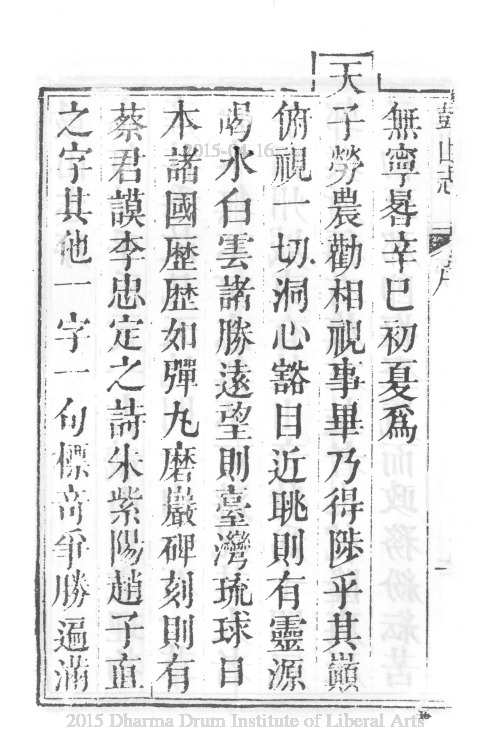 無寧晷辛巳初夏爲
天子勞農勸相視事畢乃得陟乎其巔
俯視一切洞心豁目近眺則有靈源
喝水白雲諸勝遠望則臺灣琉球日
本諸國歷歷如彈丸磨巖碑刻則有
蔡君謨李忠定之詩朱紫陽趙子直
之字其他一字一句標奇爭勝遍滿
2015-04-16
2015 Dharma Drum Institute of Liberal Arts